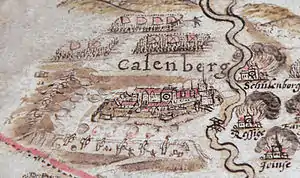 Calenberg
Schulenborg
Jeinse